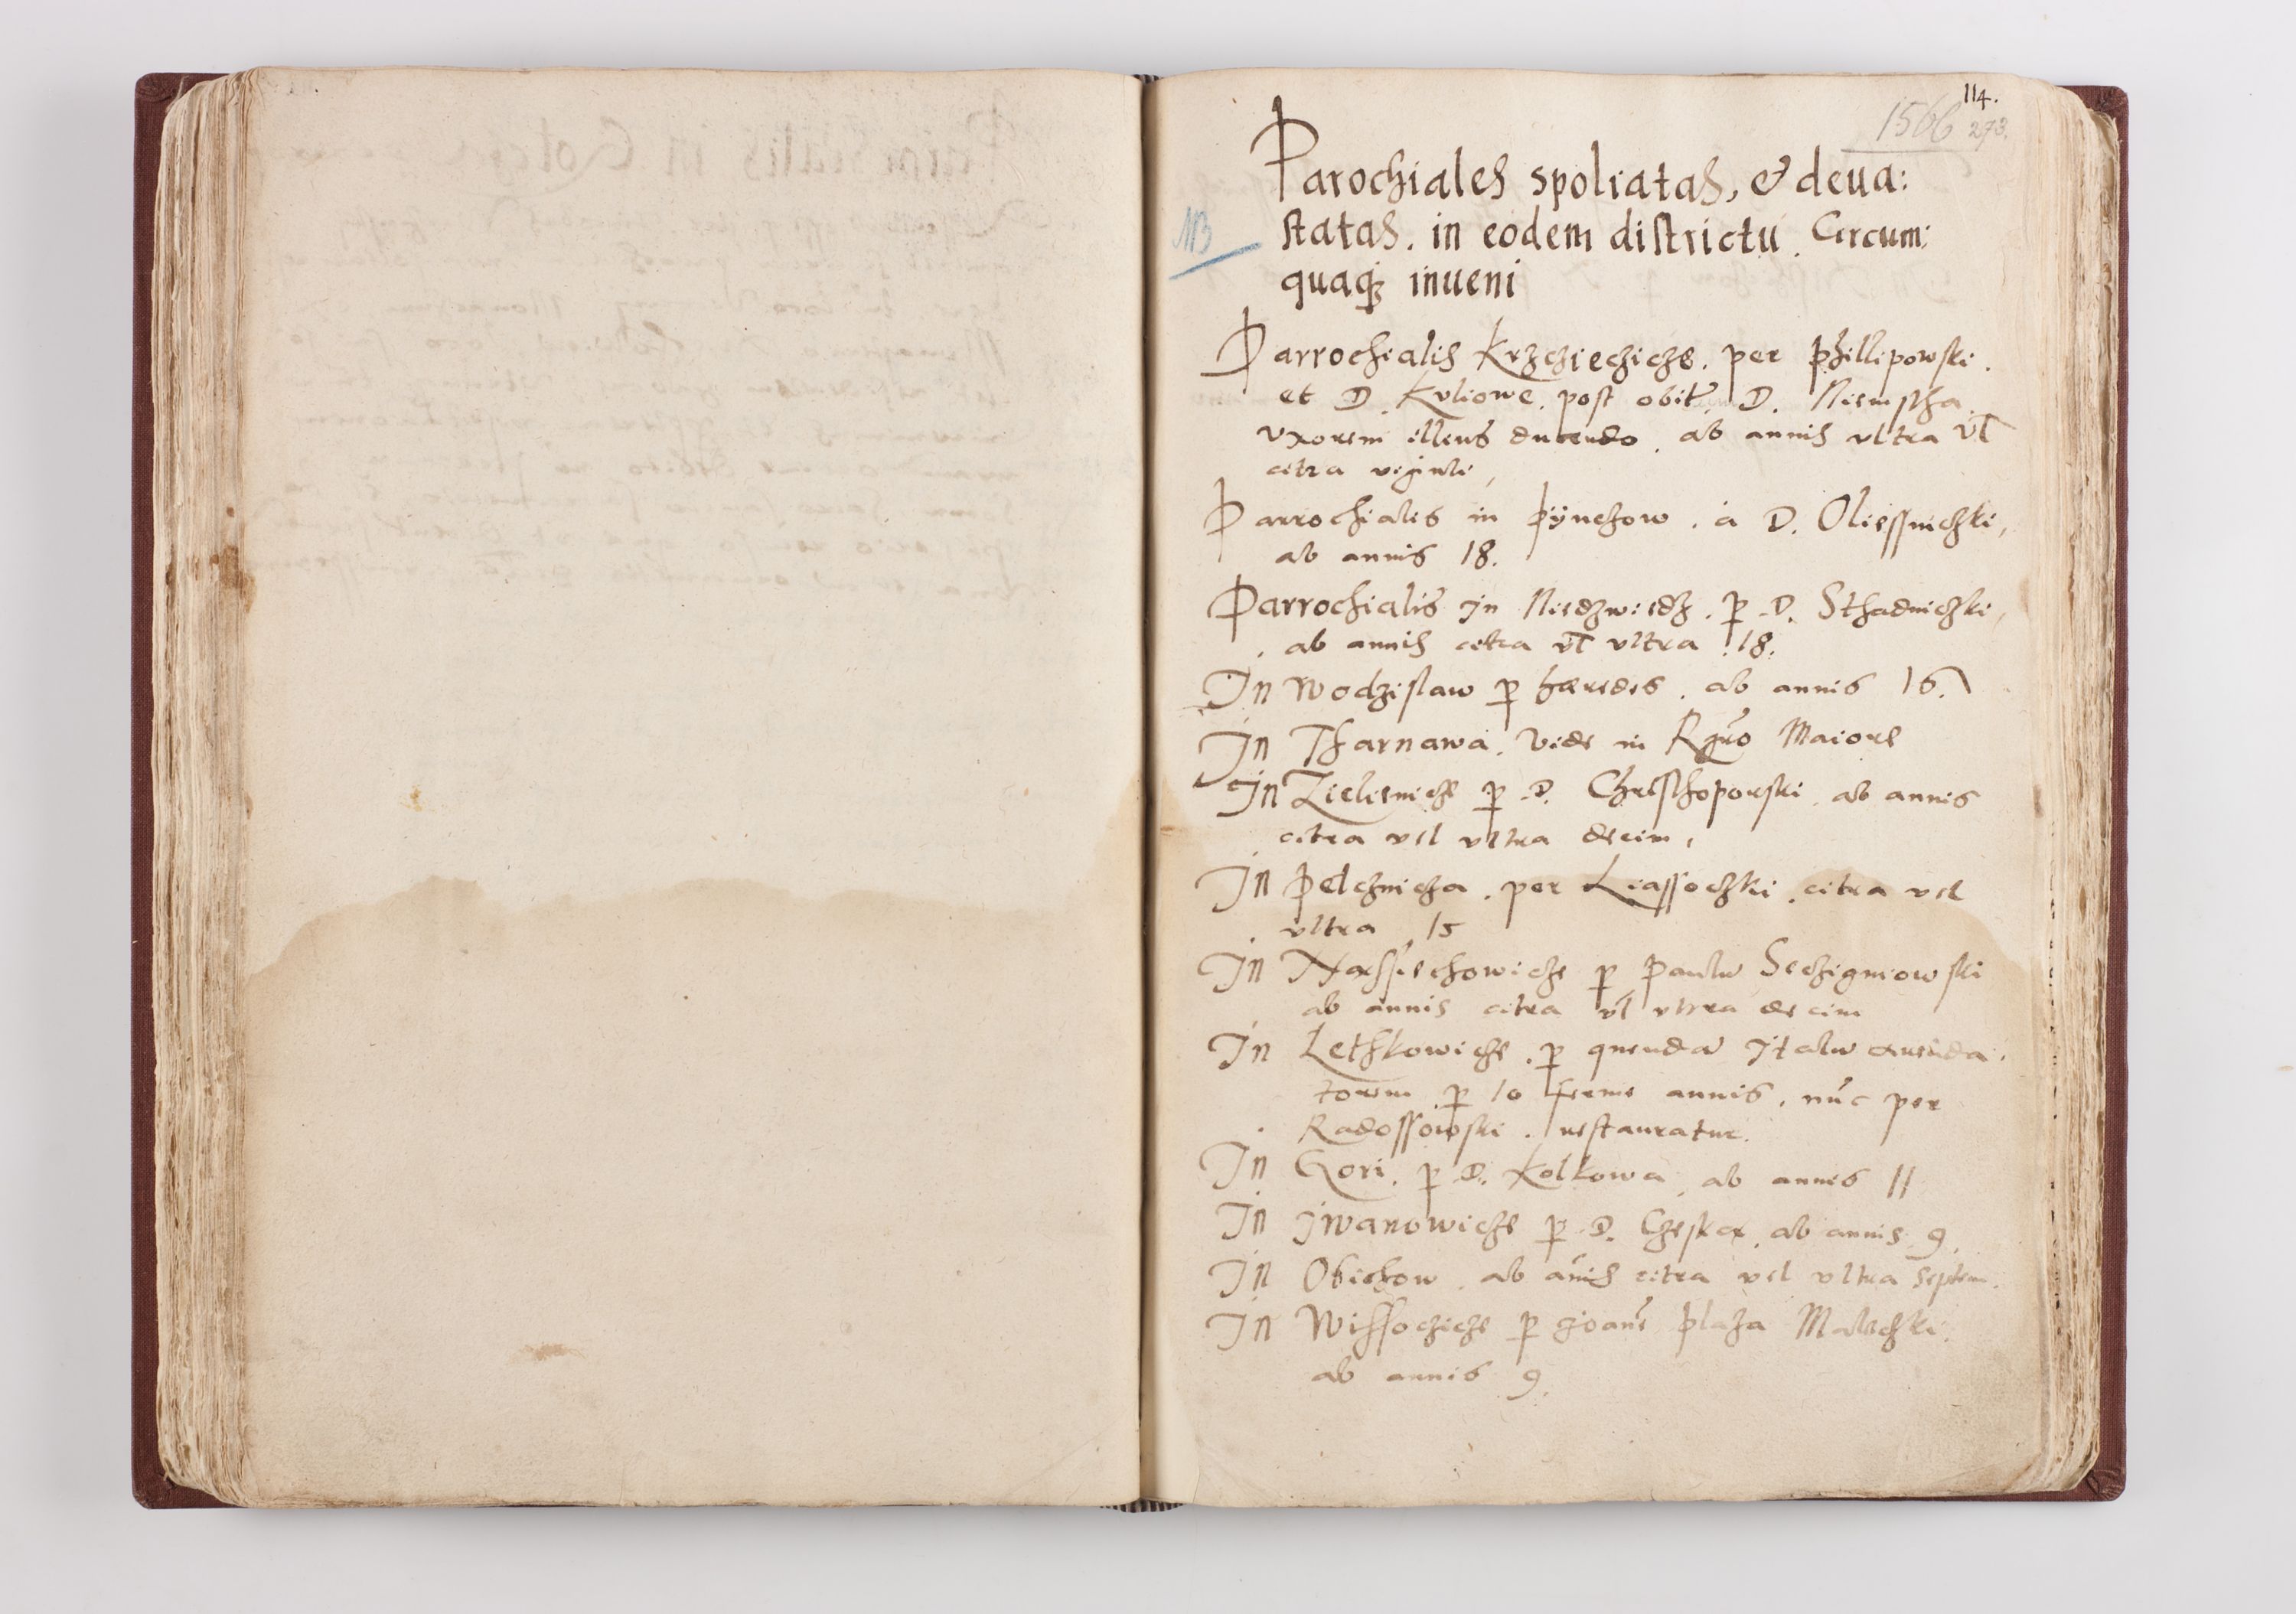 114.
1566 273.
Parochiales spoliatas, & deua:
NB
statas. in eodem districtu. Circum:
quaq3 inueni
Parrochialis Krzcziecziche. per Phillipowski.
et D. Kvliowe. post obitũ D. Niemstha
vxorem illius ducendo. ab annis vltra vl̃
citra viginti,
Parrochialis in Pÿnchow. a D. Oliessniczki,
ab annis 18.
Parrochialis in Niedzwiedz. p D. Sthadniczki,
ab annis citra vl̃ vltra 18.
In Wodzislaw p hæredes. ab annis 16.
In Tharnawa. vide in Rgr̃o Maiore
In Zielieniche p D. Christhoporski ab annis
citra vel vltra decim,
In Pelcznicza. per Liassoczki. citra vel
vltra 15
In Nassiechowiche p Paulũ Seczigniowski
ab annis citra vl̃ vltra decim
In Lethkowiche. p quendã Italũ arenda.
torem p 10 ferme annis. nũc per
Radossowski. restauratur.
In Gori. p D. Kolkowa ab annis 11
In Iwanowiche p D. Czeskæ ab annis 9.
In Obichow. ab añis citra vel vltra septem.
In Wissocziche p gioanẽ Plaza Maleczki.
ab annis 9.